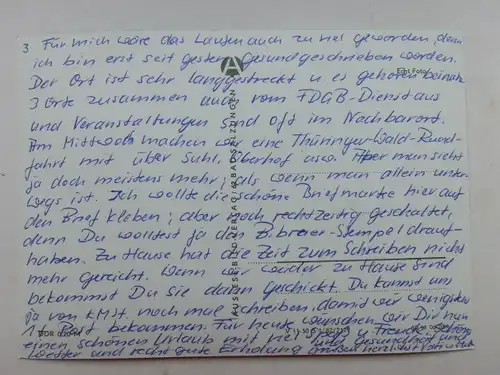 3 Für mich wäre das Laufen auch zu viel geworden, denn
ich bin erst seit gestern gesundgeschrieben worden.
Der Ort ist sehr langgestreckt u es gehören beinah
3 Orte zusammen auch vom FDGB-Dienst aus
und Veranstaltungen sind oft im Nachbarort.
Am Mittwoch machen wir eine Thüringer-Wald-Rund-
fahrt mit über Suhl, Oberhof usw. Aber man sieht
ja doch meistens mehr, als wenn man allein unter-
wegs ist. Ich wollte die schöne Briefmarke hier auf
den Brief kleben, aber noch rechtzeitig geschaltet,
denn Du wolltest ja den Stempel drauf-
haben. Zu Hause hat die Zeit zum Schreiben nicht
mehr gereicht. Wenn wir wieder zu Hause sind
bekommst Du sie dann geschickt. Du kannst uns
ja von KMSt. noch mal schreiben, damit wir wenigstens
Post bekommen. Für heute wünschen wir Dir nun
einen schönen Urlaub mit viel Freude, schönes
Wetter und recht gute Erholung und Gesundheit und
grüßen herzlichst
AUSLESE-BILD-VERLAG BAD SALZUNGEN
Echt Foto